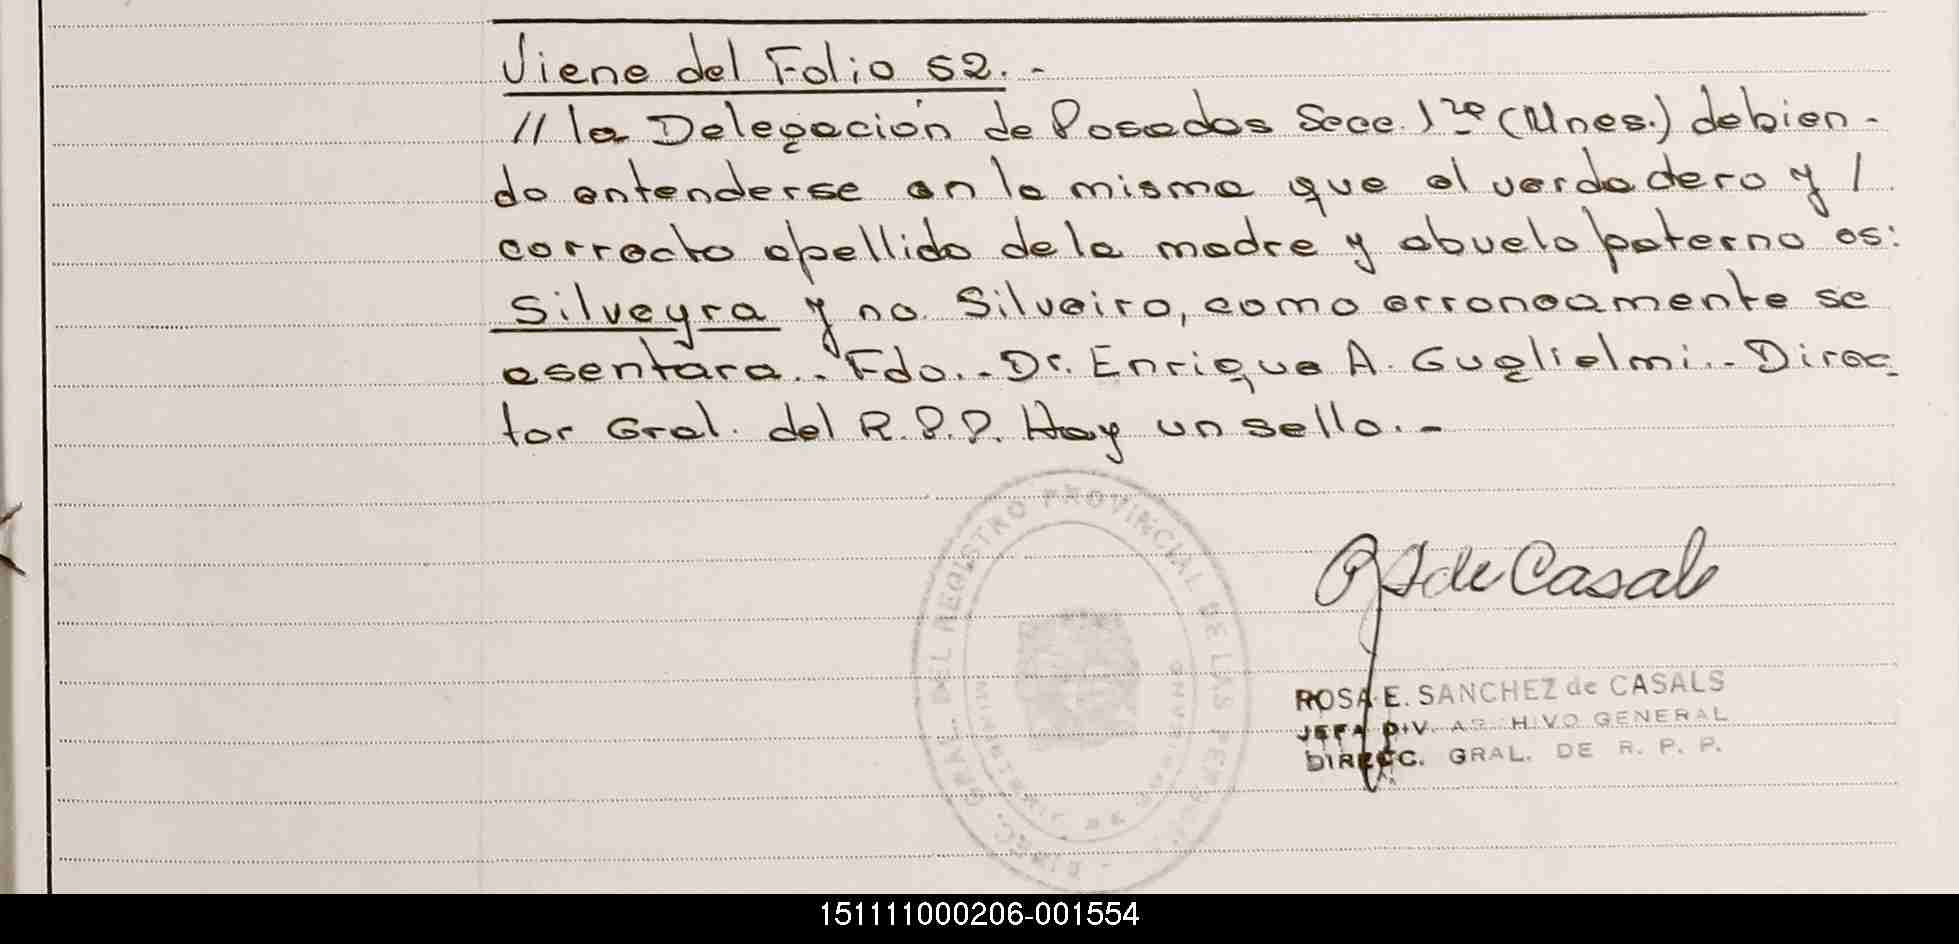 Viene del Folio 52.-
// la Delegación de Posadas Secc. 1ra (Mnes.) debien-
do entenderse en la misma que el verdadero y /
correcto apellido de la madre y abuelo paterno es:
Silveyra y no Silveira, como erroneamente se
asentara.- Fdo.- Dr. Enrique A. Guglielmi.- Direc-
tor Gral. del R.P.P. Hay un sello.-
DIREC. GRAL. DEL REGISTRO PROVINCIAL DE LAS PERSONAS
de Casals
ROSA E. SANCHEZ de CASALS
JEFA DIV. ARCHIVO GENERAL
DIRECC. GRAL. DE R. P. P.
151111000206-001554